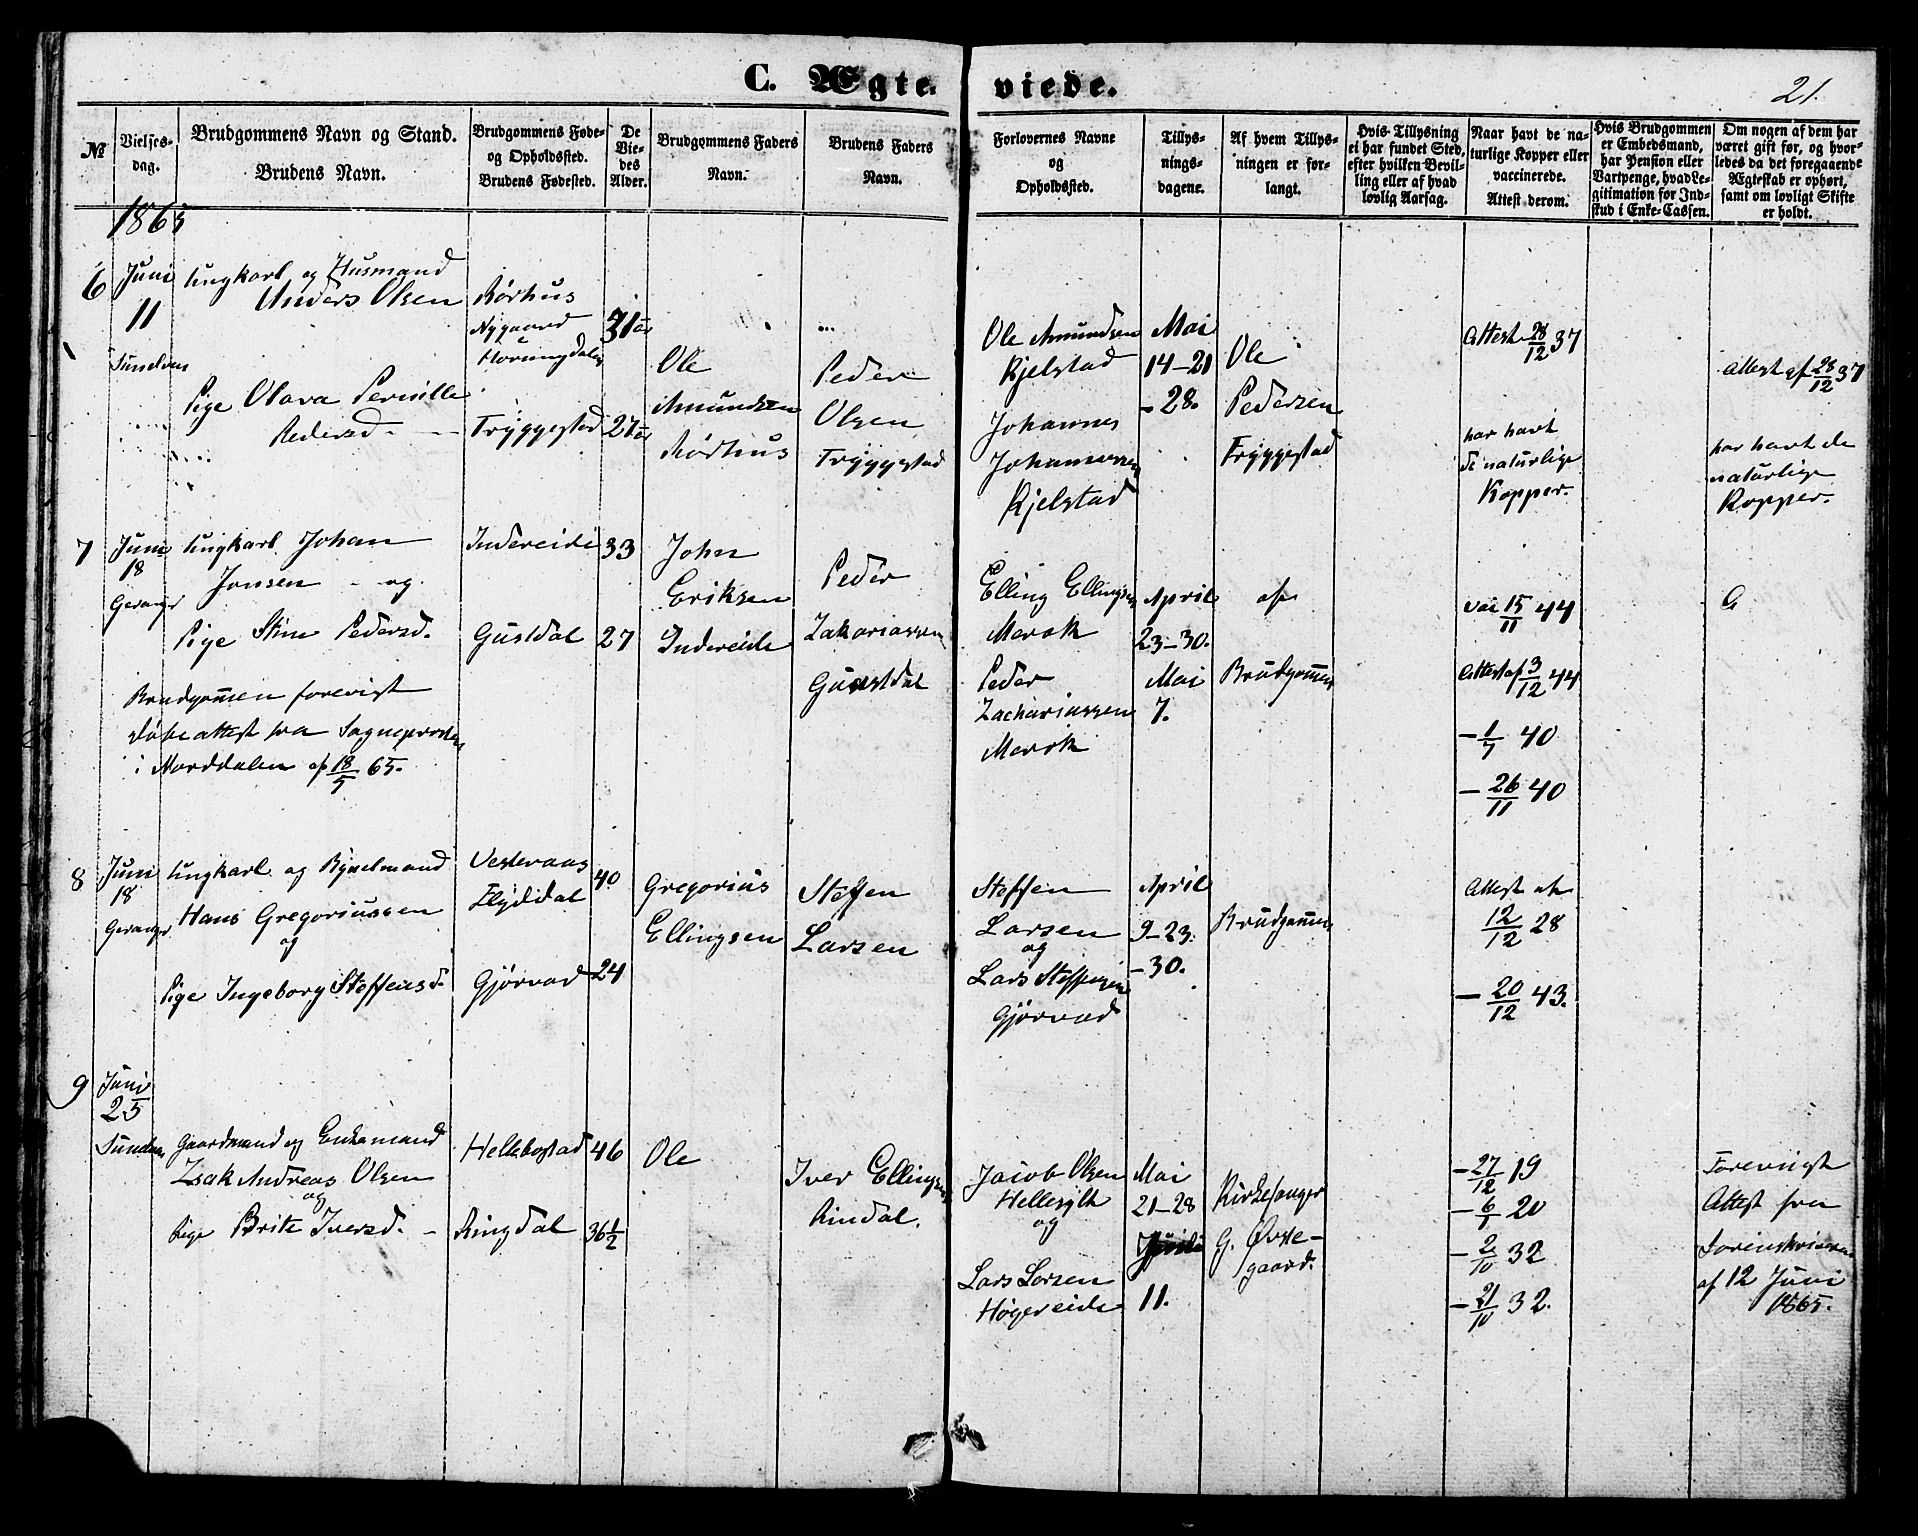 C. Ægte viede.
21.
№
Vielses-
dag.
Brudgommens Navn og Stand.
Brudens Navn.
Brudgommens Føde-
og Opholdssted.
Brudens Fødested.
De
Vie-
des
Alder.
Brudgommens Faders
Navn.
Brudens Faders
Navn.
Forlovernes Navne
og
Opholdssted.
Tillys-
nings-
dagene.
Af hvem Tillys-
ningen er for-
langt.
Hvis Tillysning
ei har fundet Sted,
efter hvilken Bevil-
ling eller af hvad
lovlig Aarsag.
Naar havt de na-
turlige Kopper eller
vaccinerede.
Attest derom.
Hvis Brudgommen
er Embedsmand,
har Pension eller
Vartpenge, hvad Le-
gitimation for Ind-
skud i Enke-Cassen.
Om nogen af dem har
været gift før, og hvor-
ledes da det foregaaende
Ægteskab er ophørt,
samt om lovligt Skifte
er holdt.
1865
6
Juni
11
Sunelven
Ungkarl og Husmand
Anders Olsen
Pige Olava Pernille
Pedersd.
Rørhus
Nygaard
Horningdalen
Tryggestad
31 aar
27 aar
Ole
Amundsen
Rørhus
Peder
Olsen
Tryggestad
Ole Amundsen
Kjelstad
Johannes
Johannessen
Kjelstad
Mai
14-21
-28.
Ole
Pedersen
Tryggestad
Attest 28/12 37
har havt
de naturlige
Kopper.
Attest af 28/12 37
har havt de
naturlige
Kopper.
7
Juni
18
Geranger
Ungkarl Johan
Jonsen - og
Pige Stine Pedersd.
Brudgommen forevist
døbeattest fra Sognepresten
i Norddalen af 18/5 65.
Indereide
Gustdal
33
27
John
Eriksen
Indereide
Peder
Zakariassen
Gustdal
Elling Ellingsen
Merok
Peder
Zachariassen
Merok
April
23-30.
Mai
7.
af
Brudgommen
vac 15/11 44
Attest af 3/12 44
- 1/7 40
- 26/11 40
G
8
Juni
18
Geranger
Ungkarl og Bygselmand
Hans Gregoriussen
og
Pige Ingeborg Steffensd.
Vesteraas
Flydidal
Gjørvad
40
24
Gregorius
Ellingsen
Steffen
Larsen
Steffen
Larsen
og
Lars Steffensen
Gjørvad
April
9-23.
-30.
Brudgommen
Attest af
12/12 28
- 20/12 43.
9
Juni
25
Sunelven
Gaardmand og Enkemand
Isak Andreas Olsen
og
Pige Brite Iversd. -
Hellebostad
Ringdal
46
36 1/2
Ole
Iver Ellingsen
Rindal.
Jacob Olsen
Hellesylt
og
Lars Larsen
Høgereide
Mai
21-28
11.
Kirkesanger
G. Øvre-
gaard.
- 27/12 19
- 6/1 20
- 2/10 32
- 21/10 32.
Forevist
Attest fra
Sorenskriveren
af 12 Juni
1865.